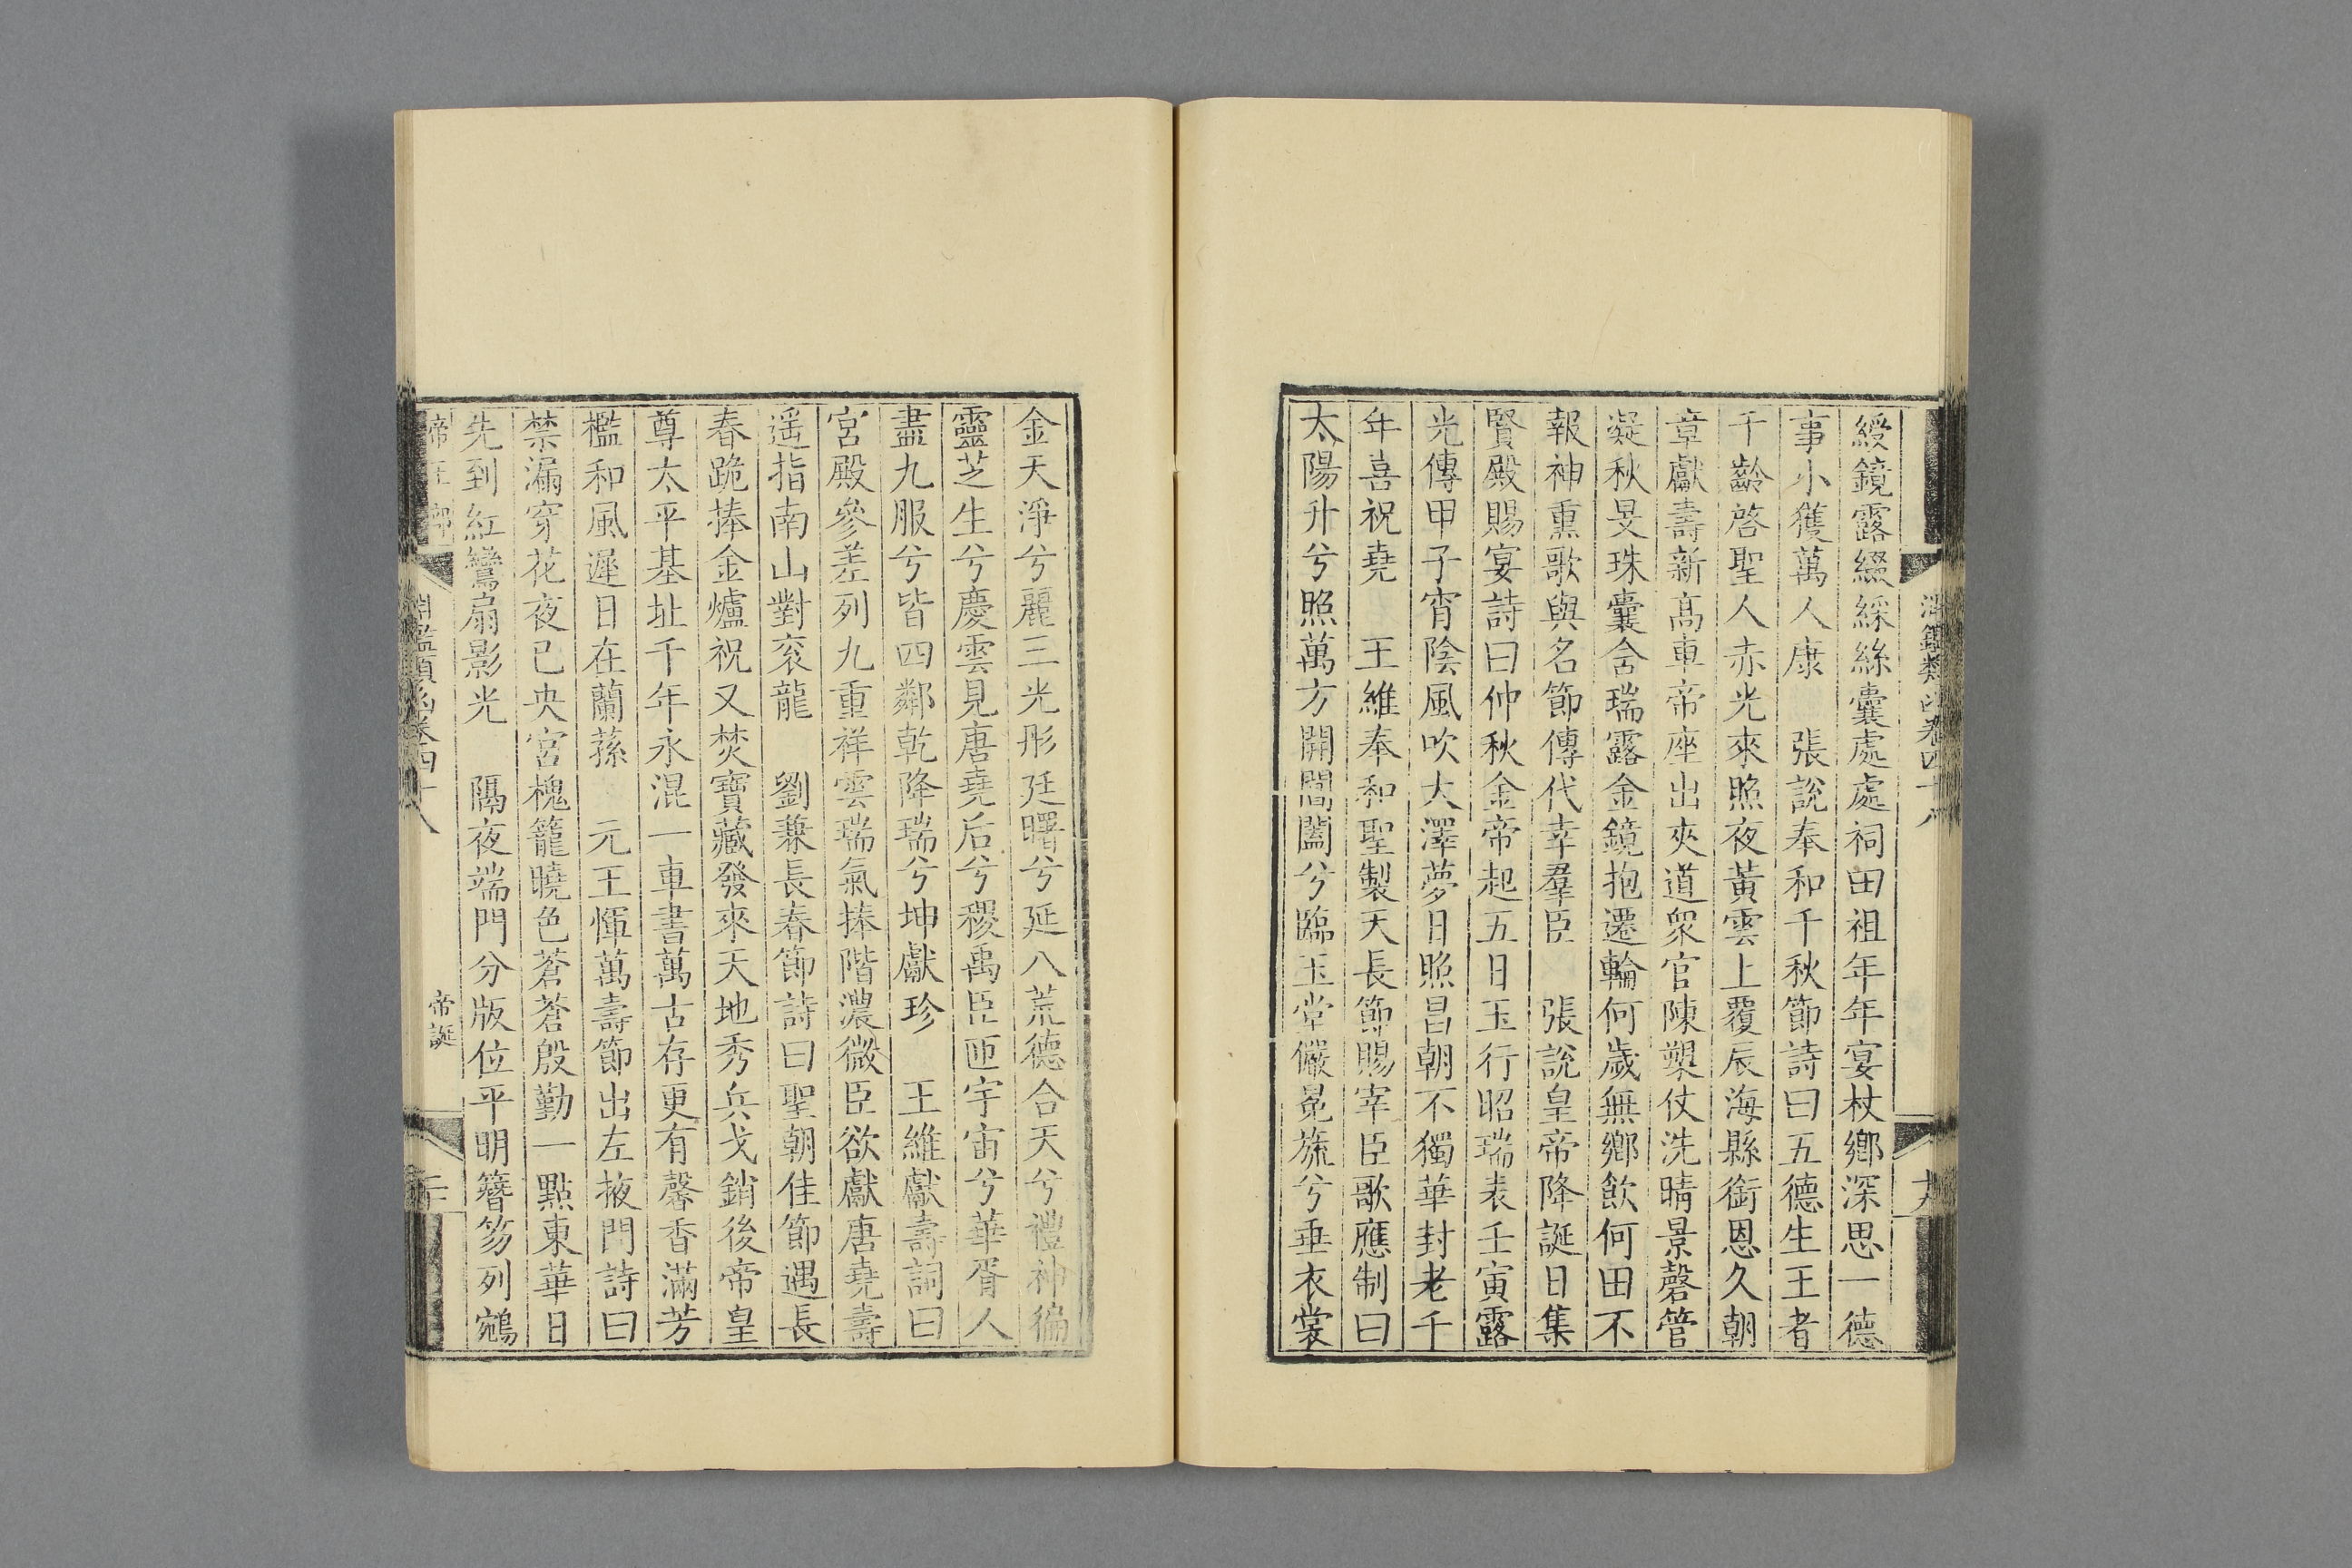 淵鑑類函卷四十八
十九
綬鏡露綴綵絲囊處處祠田祖年年宴杖鄉深思一德
事小獲萬人康　張說奉和千秋節詩曰五德生王者
千齡啓聖人赤光來照夜黃雲上覆辰海縣銜恩久朝
章獻壽新高車帝座出夾道衆官陳槊仗洗晴景磬管
凝秋旻珠囊含瑞露金鏡抱遷輪何歲無鄉飲何田不
報神熏歌與名節傳代幸羣臣　張說皇帝降誕日集
賢殿賜宴詩曰仲秋金帝起五日玉行昭瑞表壬寅露
光傳甲子宵陰風吹大澤夢日照昌朝不獨華封老千
年喜祝堯　王維奉和聖製天長節賜宰臣歌應制曰
太陽升兮照萬方開閶闔兮臨玉堂儼冕旒兮垂衣裳
金天淨兮麗三光彤廷曙兮延八荒德合天兮禮神徧
靈芝生兮慶雲見唐堯后兮稷禹臣匝宇宙兮華胥人
盡九服兮皆四鄰乾降瑞兮坤獻珍　王維獻壽詞曰
宮殿參差列九重祥雲瑞氣捧階濃微臣欲獻唐堯壽
遥指南山對衮龍　劉兼長春節詩曰聖朝佳節遇長
春跪捧金爐祝又焚寶藏發來天地秀兵戈銷後帝皇
尊太平基址千年永混一車書萬古存更有馨香滿芳
檻和風遲日在蘭蓀　元王惲萬壽節出左掖門詩曰
禁漏穿花夜已央宮槐籠曉色蒼蒼殷勤一點東華日
先到紅鸞扇影光　隔夜端門分版位平明簪笏列鵷
帝王部
淵鑑類函卷四十八
帝誕
二十